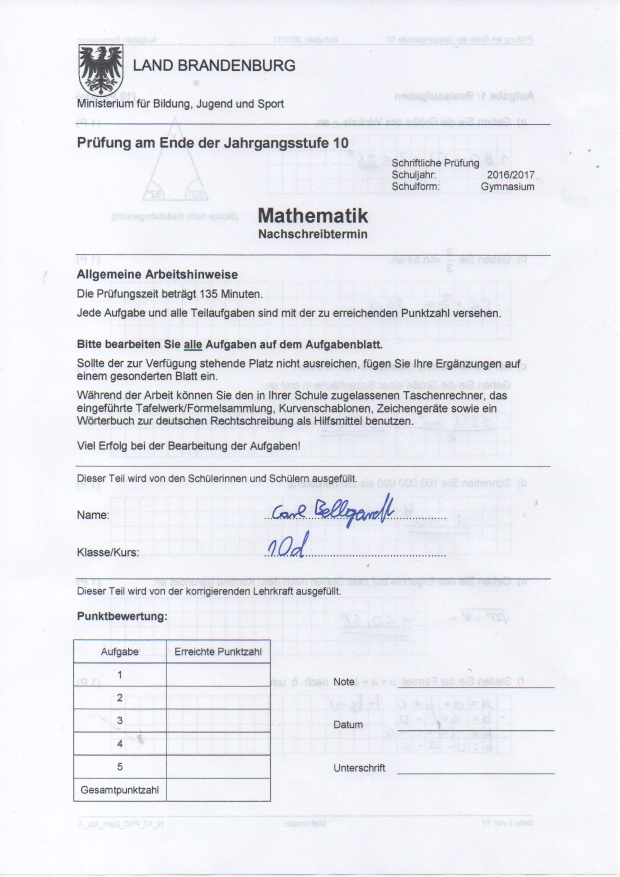 LAND BRANDENBURG
Ministerium für Bildung, Jugend und Sport
Prüfung am Ende der Jahrgangsstufe 10
Schriftliche Prüfung
Schuljahr: 2016/2017
Schulform: Gymnasium
Mathematik
Nachschreibtermin
Allgemeine Arbeitshinweise
Die Prüfungszeit beträgt 135 Minuten.
Jede Aufgabe und alle Teilaufgaben sind mit der zu erreichenden Punktzahl versehen.
Bitte bearbeiten Sie alle Aufgaben auf dem Aufgabenblatt.
Sollte der zur Verfügung stehende Platz nicht ausreichen, fügen Sie Ihre Ergänzungen auf
einem gesonderten Blatt ein.
Während der Arbeit können Sie den in Ihrer Schule zugelassenen Taschenrechner, das
eingeführte Tafelwerk/Formelsammlung, Kurvenschablonen, Zeichengeräte sowie ein
Wörterbuch zur deutschen Rechtschreibung als Hilfsmittel benutzen.
Viel Erfolg bei der Bearbeitung der Aufgaben!
Dieser Teil wird von den Schülerinnen und Schülern ausgefüllt.
Name: Carl Bellgardt
Klasse/Kurs: 10d
Dieser Teil wird von der korrigierenden Lehrkraft ausgefüllt.
Punktbewertung:
Aufgabe Erreichte Punktzahl
1
2
3
4
5
Gesamtpunktzahl
Note
Datum
Unterschrift